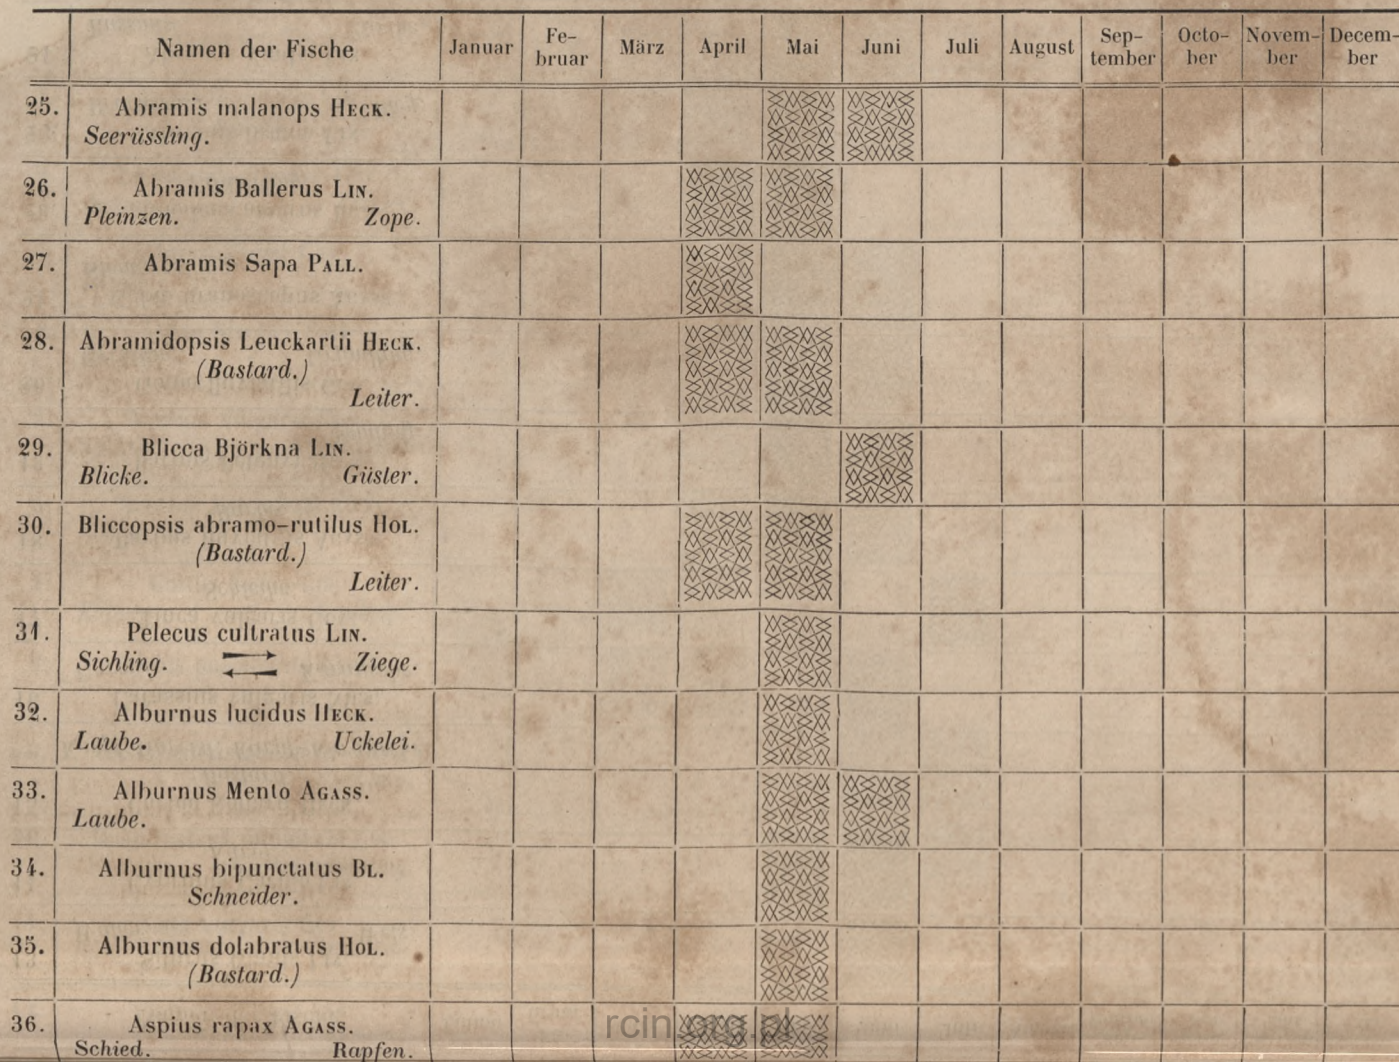 Namen der Fische Januar Fe- bruar März April Mai Juni Juli August Sep- tember Octo- ber Novem- ber Decem- ber
25. Abramis malanops HECK.
Seerüssling.
26. Abramis Ballerus LIN.
Pleinzen. Zope.
27. Abramis Sapa PALL.
28. Abramidopsis Leuckartii HECK.
(Bastard.)
Leiter.
29. Blicca Björkna LIN.
Blicke. Güster.
30. Bliccopsis abramo-rutilus HOL.
(Bastard.)
Leiter.
31. Pelecus cultratus LIN.
Sichling. Ziege.
32. Alburnus lucidus HECK.
Laube. Uckelei.
33. Alburnus Mento AGASS.
Laube.
34. Alburnus bipunctatus BL.
Schneider.
35. Alburnus dolabratus HOL.
(Bastard.)
36. Aspius rapax AGASS.
Schied. Rapfen.
rcin.org.pl